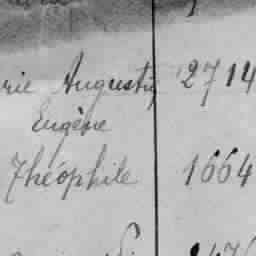 rie Augustin 2714
Eugène
Théophile 1664